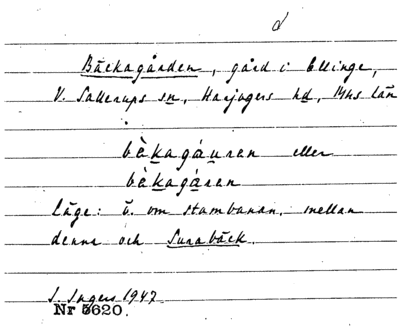 d
Bäckagården, gård i Ellinge,
V. Sallerups sn, Harjagers hd, Mhs län
bèkagáuren eller
bèkagáren
Läge: ö. om stambanan, mellan
denna och Surabäck.
I. Ingers 1947
Nr 5620.